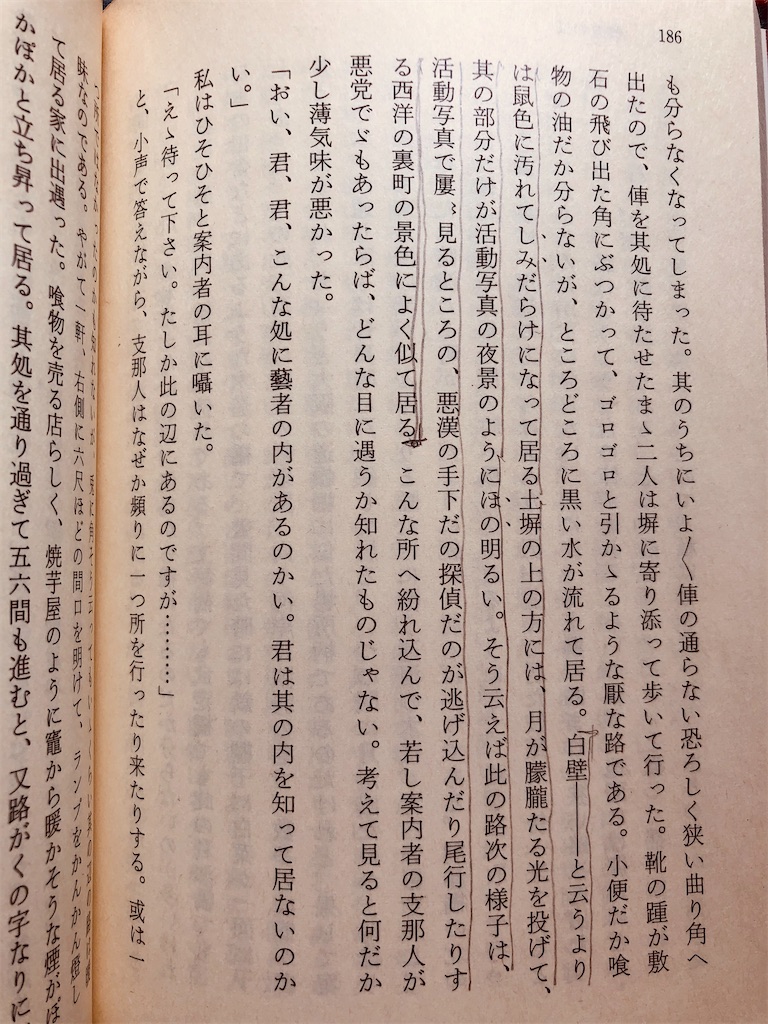 186
も分らなくなってしまった。其のうちにいよ〳〵俥の通らない恐ろしく狭い曲り角へ
出たので、俥を其処に待たせたまゝ二人は塀に寄り添って歩いて行った。靴の踵が敷
石の飛び出た角にぶつかって、ゴロゴロと引かゝるような厭な路である。小便だか喰
物の油だか分らないが、ところどころに黒い水が流れて居る。白壁――と云うより
は鼠色に汚れてしみだらけになって居る土塀の上の方には、月が朦朧たる光を投げて、
其の部分だけが活動写真の夜景のようにほの明るい。そう云えば此の路次の様子は、
活動写真で屢〻見るところの、悪漢の手下だの探偵だのが逃げ込んだり尾行したりす
る西洋の裏町の景色によく似て居る。こんな所へ紛れ込んで、若し案内者の支那人が
悪党でゞもあったらば、どんな目に遇うか知れたものじゃない。考えて見ると何だか
少し薄気味が悪かった。
「おい、君、君、こんな処に藝者の内があるのかい。君は其の内を知って居ないのか
い。」
私はひそひそと案内者の耳に囁いた。
「えゝ待って下さい。たしか此の辺にあるのですが………」
と、小声で答えながら、支那人はなぜか頻りに一つ所を行ったり来たりする。或は一
味なのである。やがて一軒、右側に六尺ほどの間口を明けて、ランプをかんかん燈し
て居る家に出遇った。喰物を売る店らしく、焼芋屋のように竈から暖かそうな煙がぽ
かぽかと立ち昇って居る。其処を通り過ぎて五六間も進むと、又路がくの字なりに